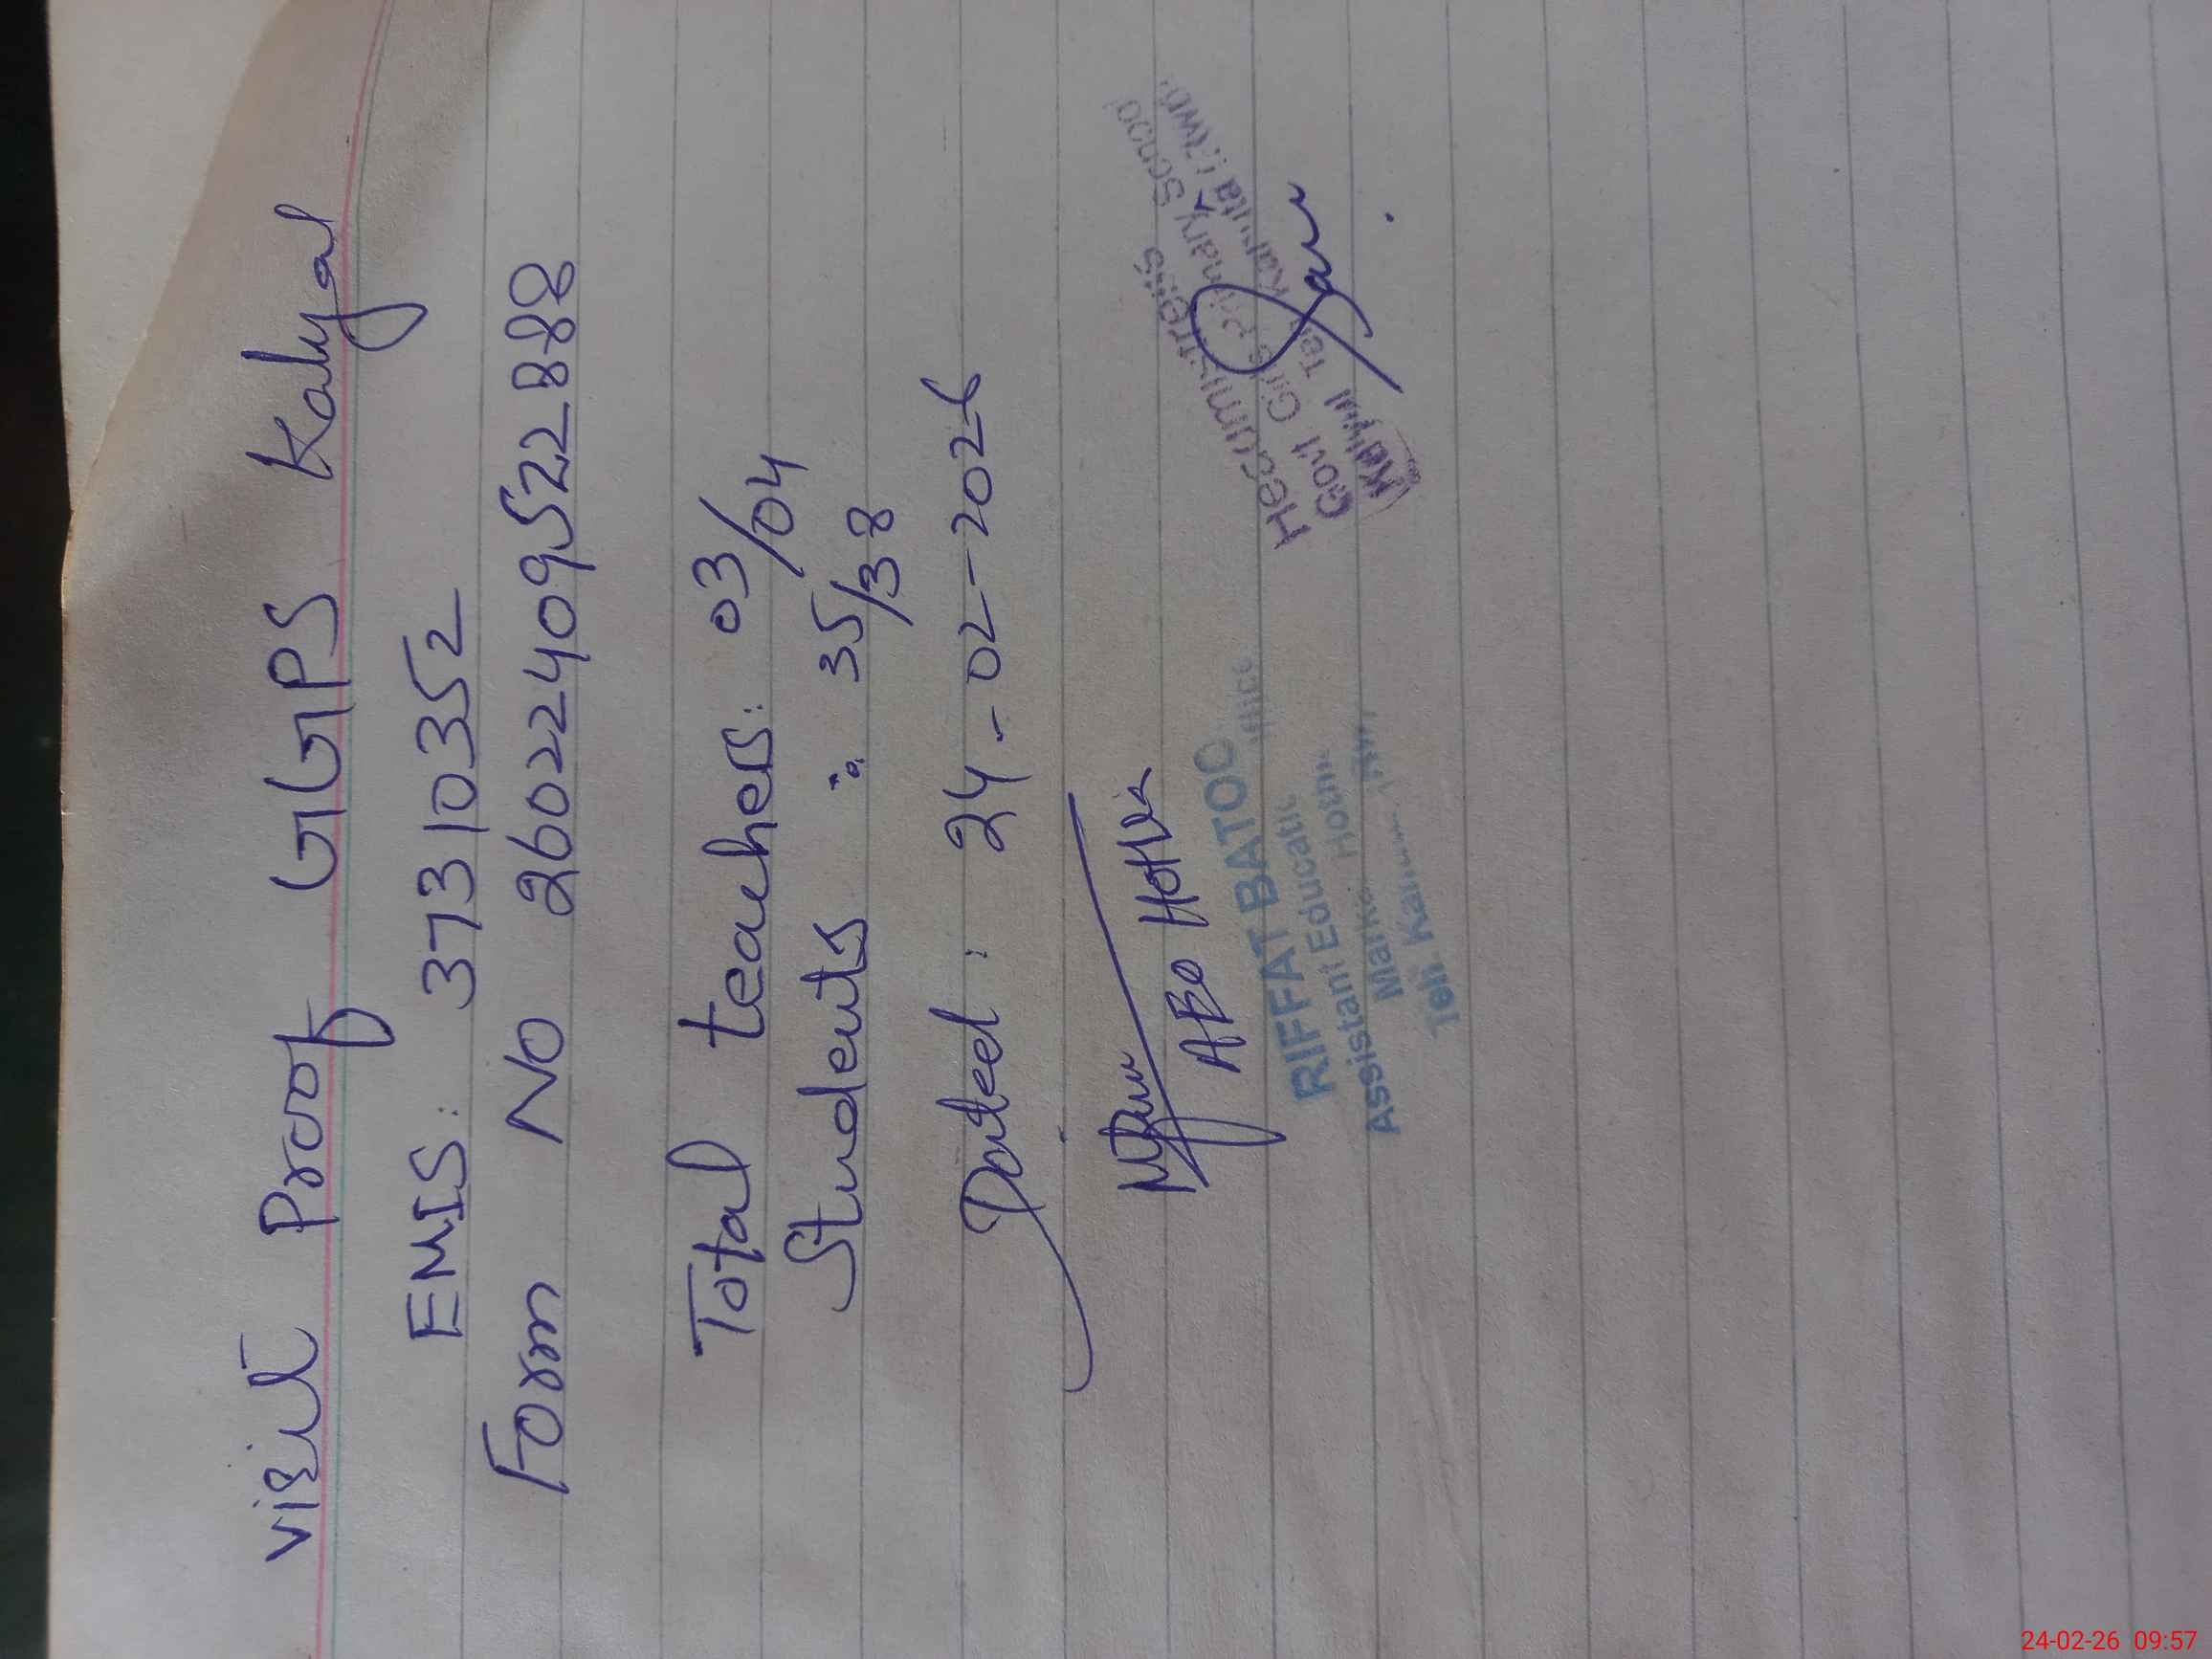 Visit Proof GGPS Kalyal
EMIS: 37310352
Form No 26022409522888
Total teachers: 03/04
Students : 35/38
Dated: 24-02-2026
AEO Hothla
RIFFAT BATOO
Assistant Educatic
Teh. Kar
Headmistress
Govt Girls Primary School
Kalyal Teh
24-02-26 09:57